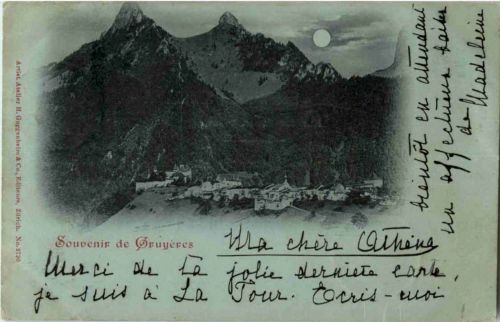 Souvenir de Gruyères
Ma chère Athina
Merci de ta jolie dernière carte,
je suis à La Tour. Ecris-moi
bientôt en attendant
un affectueux
de Madeleine
Artist. Atelier H. Guggenheim & Co., Editeurs, Zürich. No.